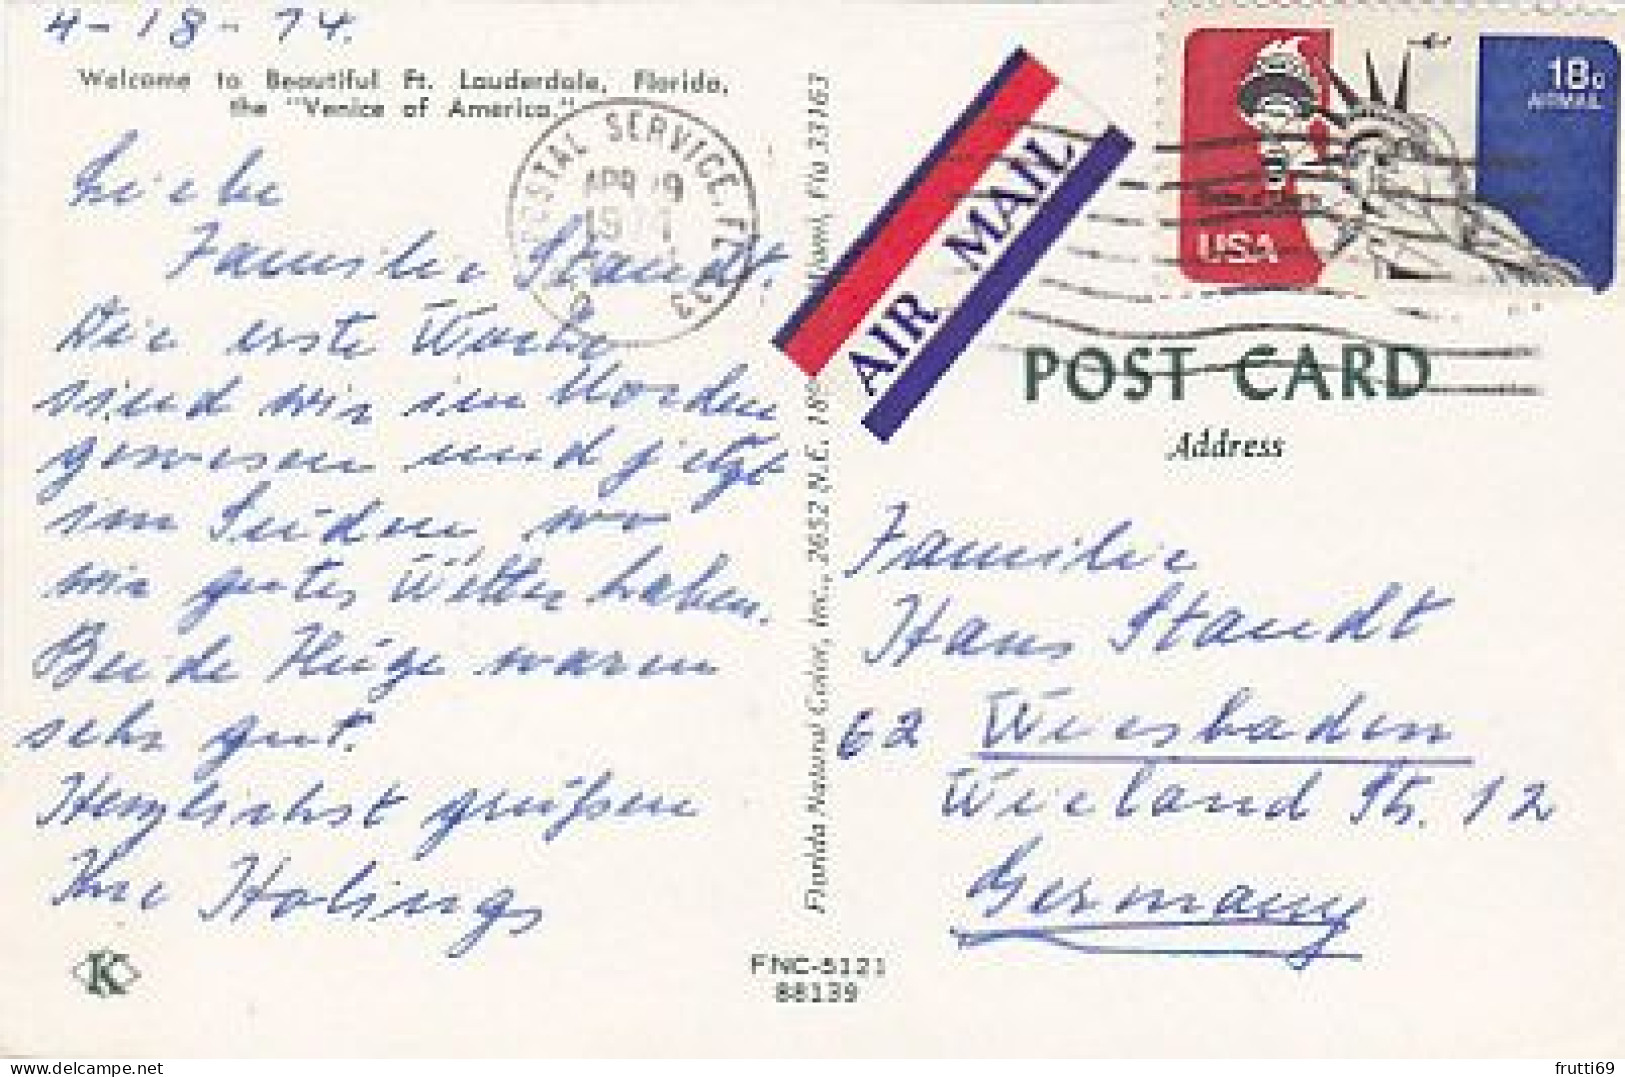 4-18-74.
Welcome to Beautiful Ft. Lauderdale, Florida,
the "Venice of America."
Liebe
Familie Staudt.
Die erste Woche
sind wir im Norden
gewesen und jetzt
im Süden wo
wir gutes Wetter haben.
Beide Flüge waren
sehr gut.
Herzlichst grüßen
Ihre Holings
POSTAL SERVICE, FL 33
APR 19
1974
Florida Natural Color, Inc., 2652 N.E. 18 Miami, Fla 33163
AIR MAIL
18c
AIRMAIL
USA
POST CARD
Address
Familie
Hans Staudt
62 Wiesbaden
Wieland Str. 12
Germany
K
FNC-5121
88139
frutti69